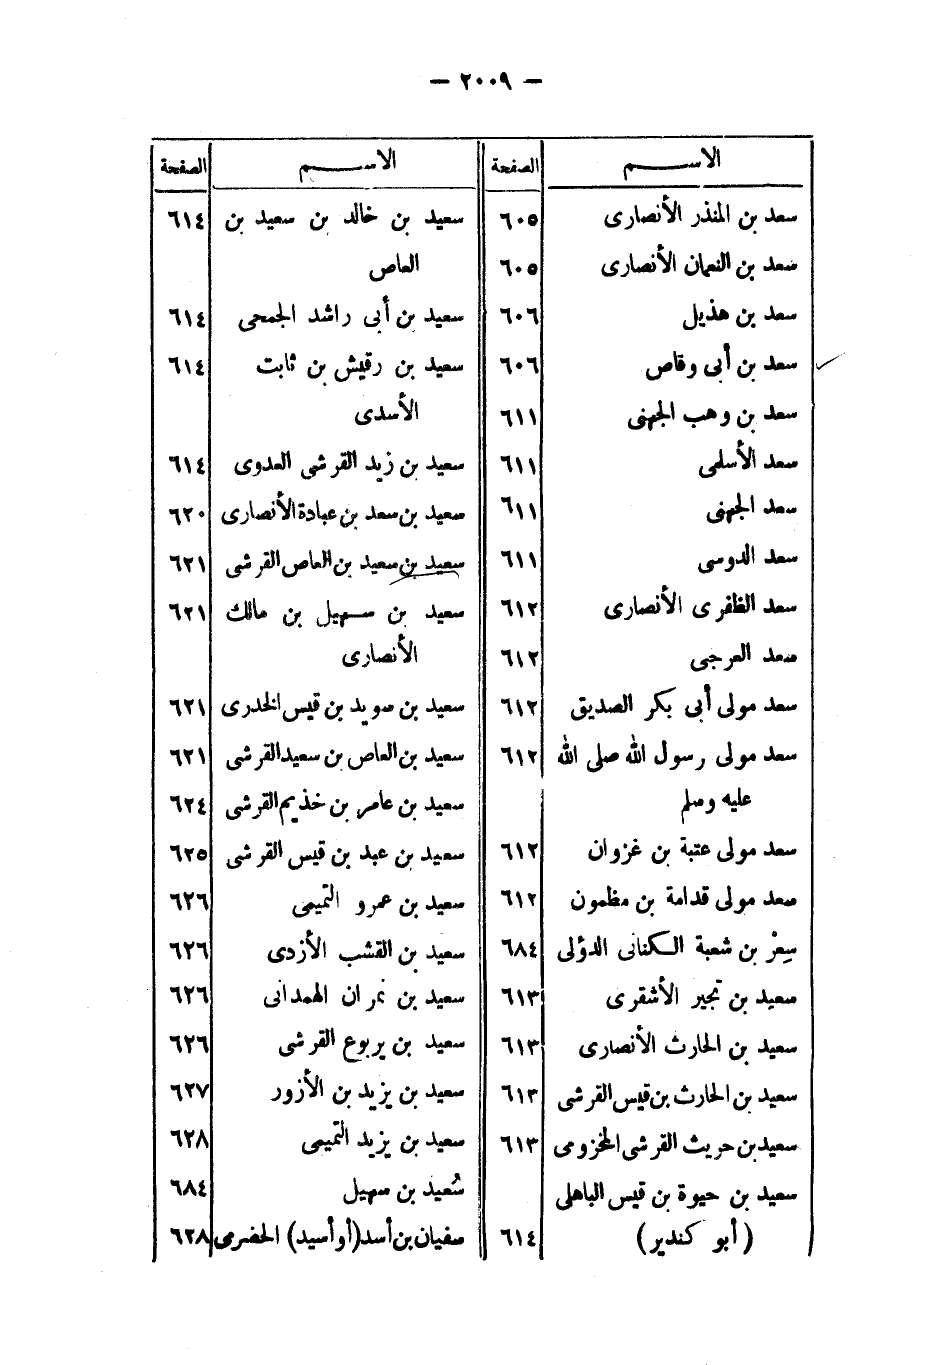 — ٢٠٠٩ —
الاســـم الصفحة
سعد بن المنذر الأنصارى ٦٠٥
سعد بن النعمان الأنصارى ٦٠٥
سعد بن هذيل ٦٠٦
سعد بن أبى وقاص ٦٠٦
سعد بن وهب الجهنى ٦١١
سعد الأسلمى ٦١١
سعد الجهنى ٦١١
سعد الدوسى ٦١١
سعد الظفرى الأنصارى ٦١٢
سعد العرجى ٦١٢
سعد مولى أبى بكر الصديق ٦١٢
سعد مولى رسول الله صلى الله ٦١٢
عليه وسلم
سعد مولى عتبة بن غزوان ٦١٢
سعد مولى قدامة بن مظعون ٦١٢
سِعْر بن شعبة الكنانى الدؤلى ٦٨٤
سعيد بن بجير الأشقرى ٦١٣
سعيد بن الحارث الأنصارى ٦١٣
سعيد بن الحارث بن قيس القرشى ٦١٣
سعيد بن حريث القرشى المخزومى ٦١٣
سعيد بن حيوة بن قيس الباهلى
(أبو كندير) ٦١٤
الاســـم الصفحة
سعيد بن خالد بن سعيد بن ٦١٤
العاص
سعيد بن أبى راشد الجمحى ٦١٤
سعيد بن رقيش بن ثابت ٦١٤
الأسدى
سعيد بن زيد القرشى العدوى ٦١٤
سعيد بن سعد بن عبادة الأنصارى ٦٢٠
سعيد بن سعيد بن العاص القرشى ٦٢١
سعيد بن سهيل بن مالك ٦٢١
الأنصارى
سعيد بن سويد بن قيس الخدرى ٦٢١
سعيد بن العاص بن سعيد القرشى ٦٢١
سعيد بن عامر بن خذيم القرشى ٦٢٤
سعيد بن عبد بن قيس القرشى ٦٢٥
سعيد بن عمرو التميمى ٦٢٦
سعيد بن القشب الأزدى ٦٢٦
سعيد بن نمران الهمدانى ٦٢٦
سعيد بن يربوع القرشى ٦٢٦
سعيد بن يزيد بن الأزور ٦٢٧
سعيد بن يزيد التميمى ٦٢٨
سُعيد بن سهيل ٦٨٤
سفيان بن أسد (أو أسيد) الحضرمى ٦٢٨